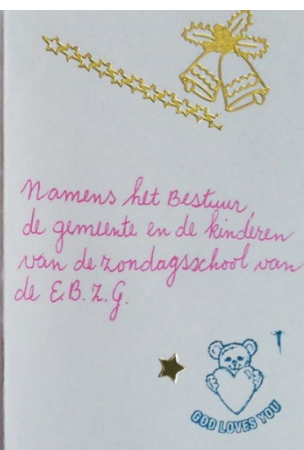 Namens het Bestuur
de gemeente en de kinderen
van de zondagsschool van
de E.B.Z.G.
GOD LOVES YOU